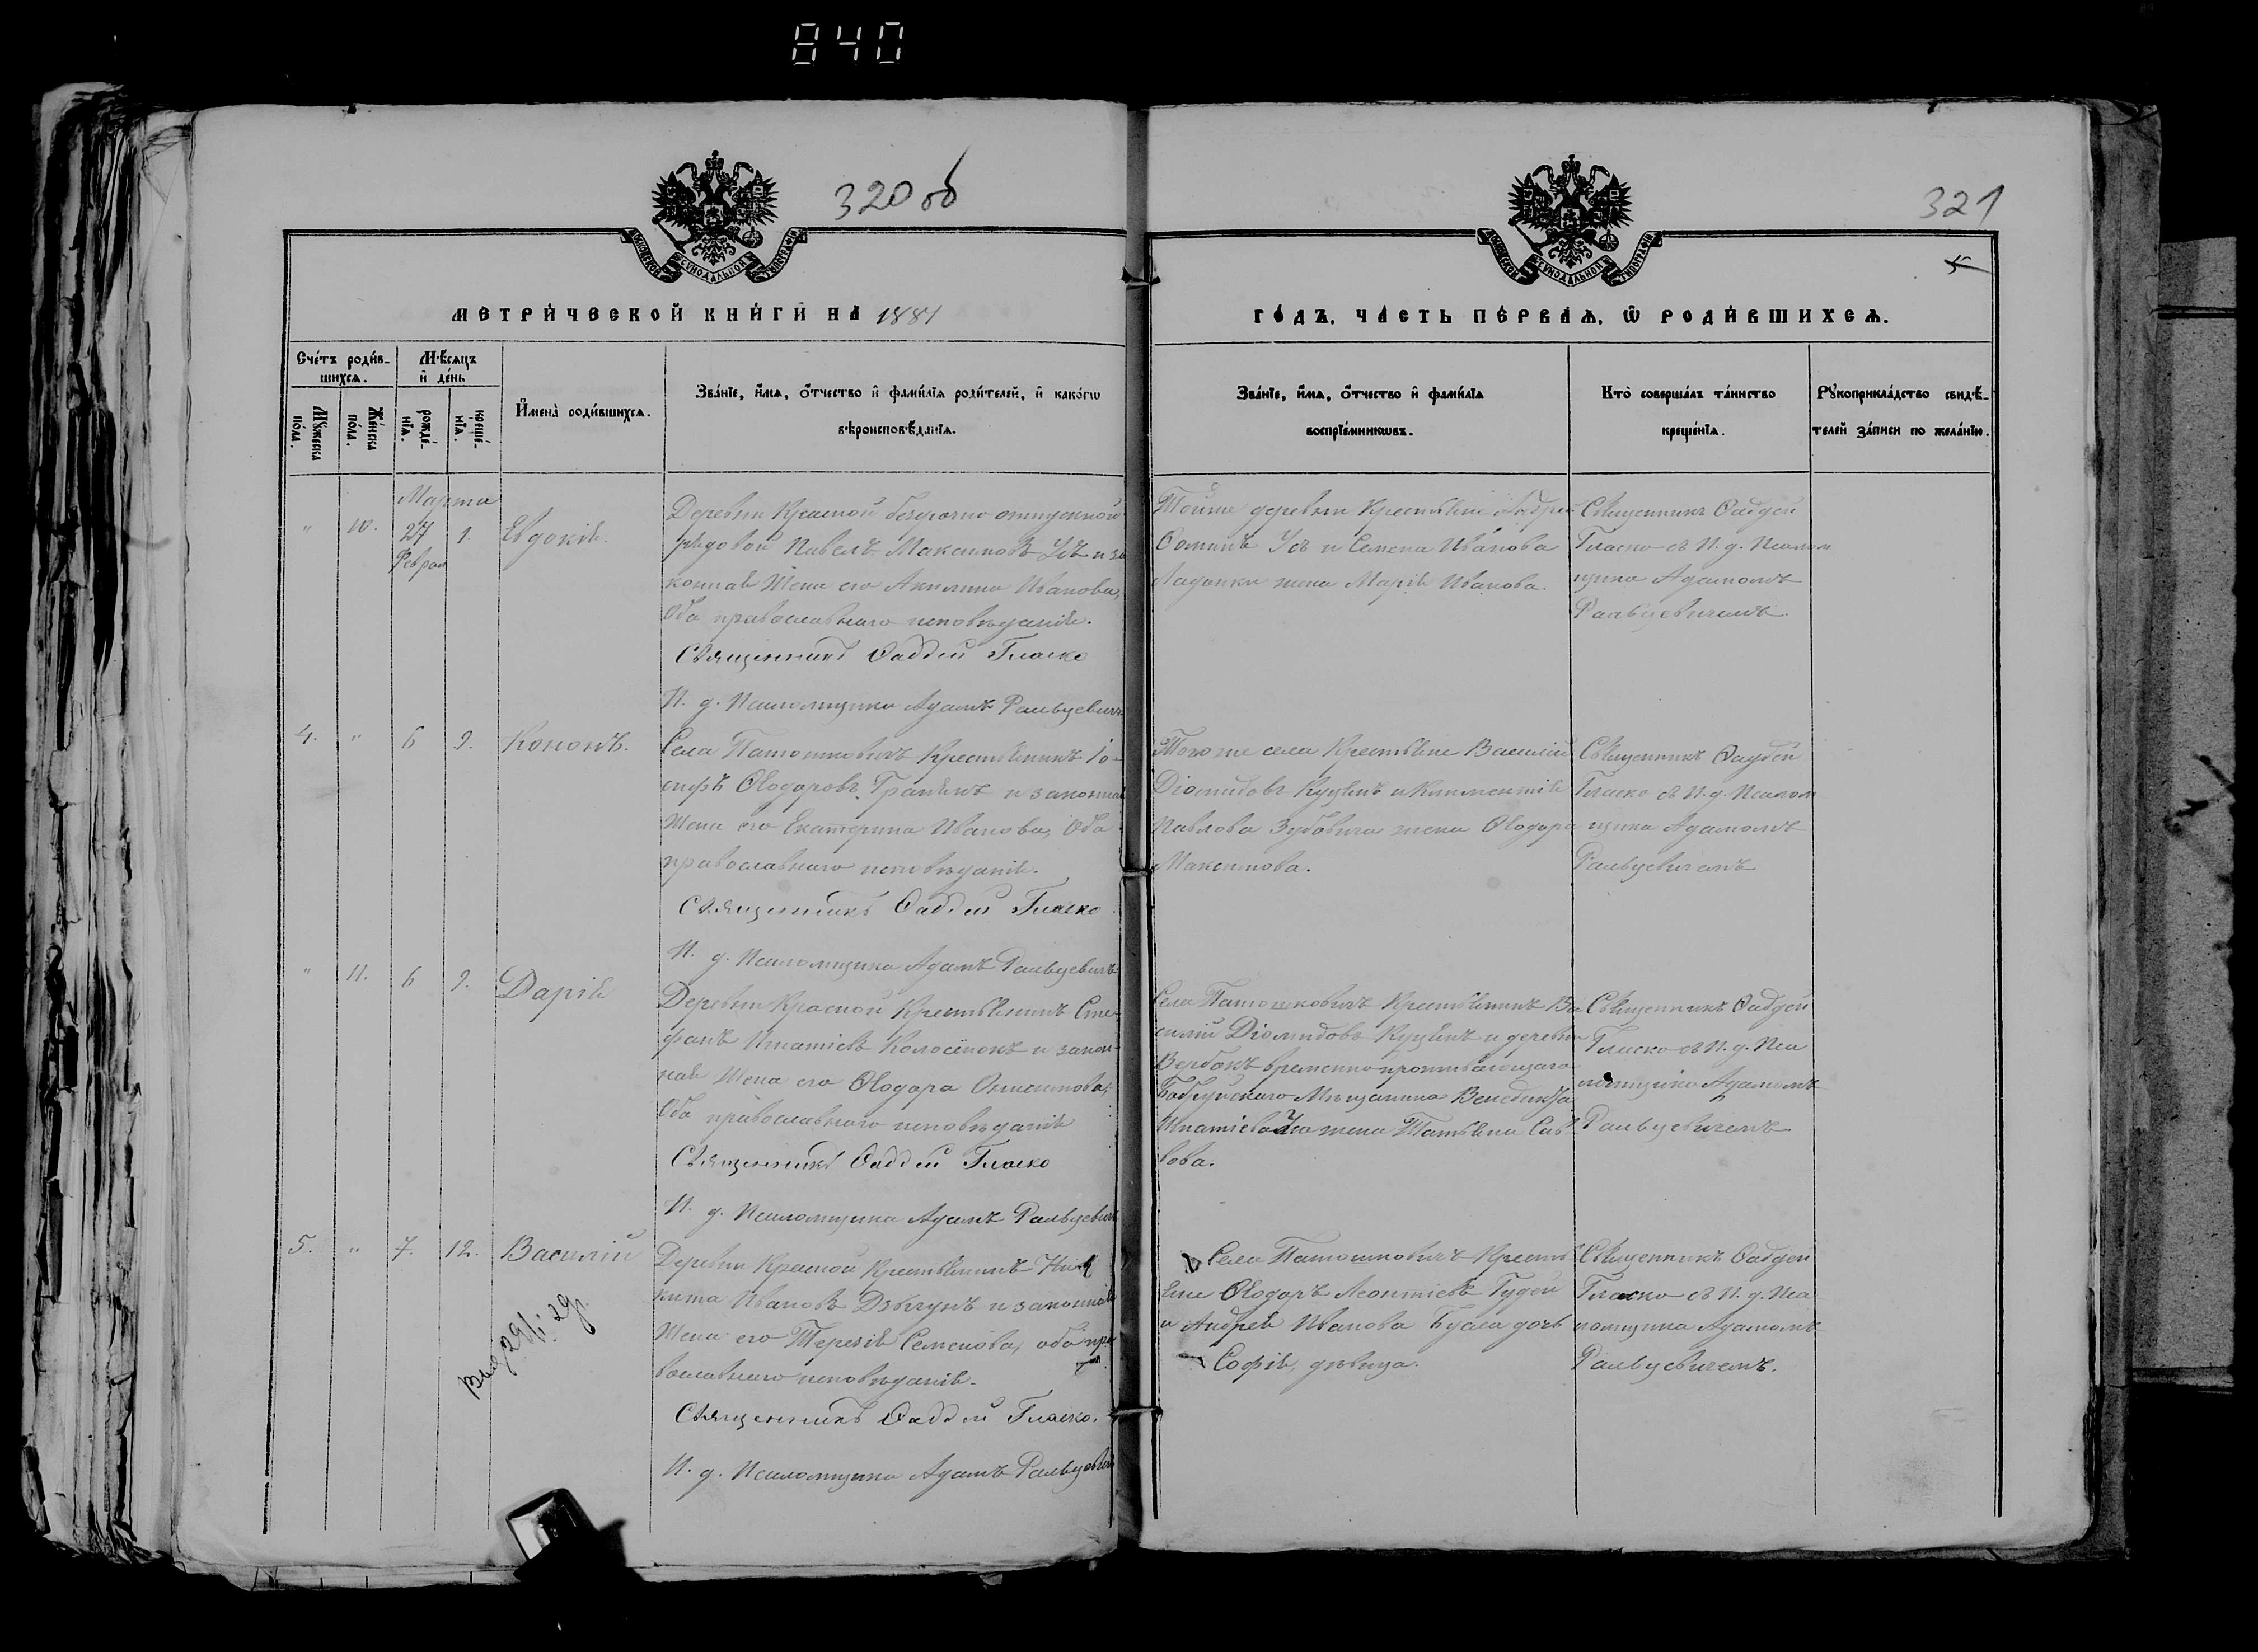 840
320 об
321
МОСКОВСКОЙ СУНОДАЛЬНОЙ ТИПОГРАФІИ
МОСКОВСКОЙ СУНОДАЛЬНОЙ ТИПОГРАФІИ
МЕТРИ́ЧЕСКОЙ КНИ́ГИ НА 1881
ГО́ДЪ. ЧА́СТЬ ПЕ́РВАѦ, Ѡ РОДИ́ВШИХСѦ.
Сче́тъ роди́в-
шихсѧ.
Мѣ́сѧцъ
и де́нь
Мꙋ́жеска
по́ла.
Же́нска
по́ла.
рожде́-
нїѧ.
креще́-
нїѧ.
И҆мена̀ роди́вшихсѧ.
Зва́нїе, и҆́мѧ, ѻ҆́тчество и҆ фами́лїѧ роди́телей, и҆ како́гѡ
вѣроисповѣ́данїѧ.
Зва́нїе, и҆́мѧ, ѻ҆́тчество и҆ фами́лїѧ
воспрїе́мникѡвъ.
Кто̀ соверша́лъ та́инство
креще́нїѧ.
Рꙋкоприкла́дство свидѣ́-
телей за́писи по жела́нїю.
Марта
" 10. 27 1. Евдокія.
Феврал
Деревни Красной безсрочно отпускной
рядовой Павелъ Максимовъ Усъ и за
конная жена его Акилина Иванова,
Оба православнаго исповѣданія.
Священникъ Ѳаддей Гласко
И. д. Псаломщика Адамъ Ральцевичъ
Тойже деревни крестьяне Андрей
Ѳоминъ Усъ и Семена Иванова
жена Марія Иванова.
Священникъ Ѳаддей
Гласко съ И. д. Псалом
щика Адамомъ
Ральцевичемъ
4. " 6 9. Кононъ.
Села Патошковичъ Крестьянинъ Іо-
сифъ Ѳеодоровъ и законная
Жена его Екатерина Иванова, Оба
православнаго исповѣданія.
Священникъ Ѳаддей Гласко
И. д. Псаломщика Адамъ Ральцевичъ
Тогоже села Крестьяне Василій
Діомидовъ и Климентія
Павлова Зубовича жена Ѳеодора
Максимова.
Священникъ Ѳаддей
Гласко съ И. д. Псалом
щика Адамомъ
Ральцевичемъ
" 11. 6 9. Дарія
Деревни Красной Крестьянинъ Сте-
фанъ Игнатіевъ и закон-
ная Жена его Ѳеодора Онисимова,
Оба православнаго исповѣданія
Священникъ Ѳаддей Гласко
И. д. Псаломщика Адамъ Ральцевичъ
Села Патошковичъ Крестьянинъ Ва
силій Діомидовъ и деревни
Вербокъ временно проживающаго
Бобруйскаго Мѣщанина Венедикта
Игнатіева жена Татьяна Сав-
вова.
Священникъ Ѳаддей
Гласко съ И. д. Пса
ломщика Адамомъ
Ральцевичемъ
5. " 7. 12. Василій
Деревни Красной Крестьянинъ Ни
кита Ивановъ и законная
Жена его Терезія Семенова, оба пра
вославнаго исповѣданія.
Священникъ Ѳаддей Гласко.
И. д. Псаломщика Адамъ Ральцевичъ
Села Патошковичъ Кресть
яне Ѳеодоръ Леонтіевъ
и Андрея Иванова дочь
Софія, дѣвица.
Священникъ Ѳаддей
Гласко съ И. д. Пса
ломщика Адамомъ
Ральцевичемъ.